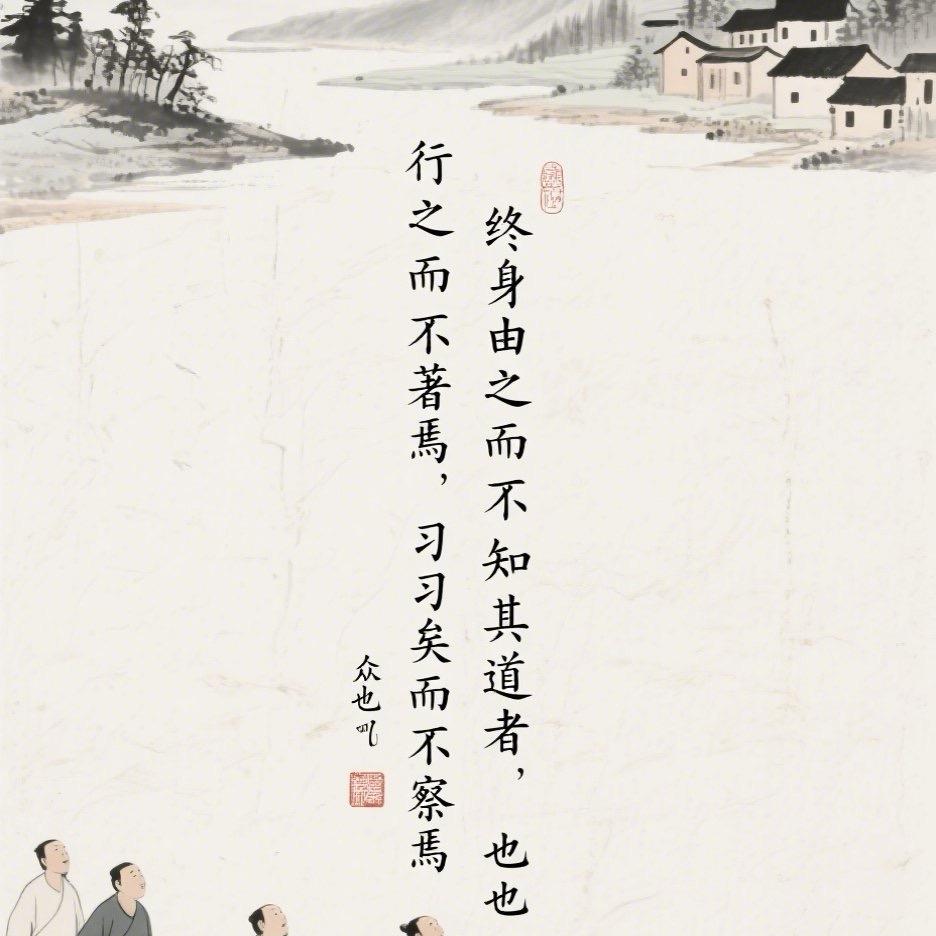 终身由之而不知其道者，也也
行之而不著焉，习习矣而不察焉
众也